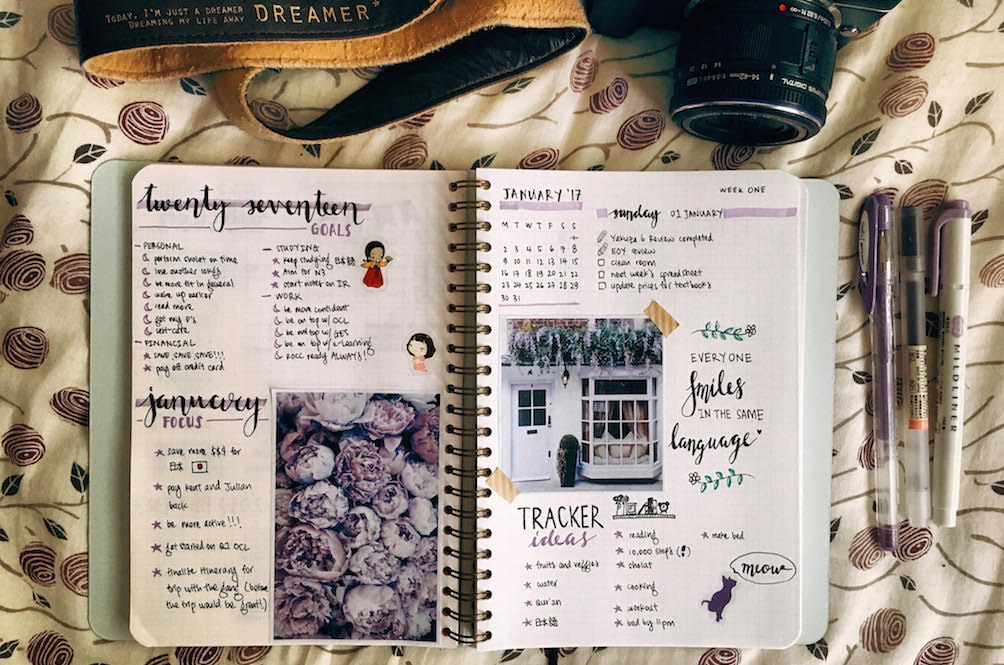 TODAY, I'M JUST A DREAMER
DREAMING MY LIFE AWAY
DREAMER*
14-42mm 1:3.5-5.6
OLYMPUS DIGITAL
twenty seventeen
GOALS
PERSONAL
perform sholat on time
lose another 10kgs
be more fit in general
wake up earlier
read more
get my P's
self-care
FINANCIAL
SAVE, SAVE, SAVE!!!
pay off credit card
STUDYING
keep studying 日本語
Aim for N3
start notes on IR
WORK
be more confident
be on top w/ OCL
be on top w/ GES
be on top w/ e-learning
ROCC ready ALWAYS!
january
FOCUS
save more $$$ for
日本
pay Kent and Julian
back
be more active!!!
get started on Q1 OCL
finalise itinerary for
trip with the gang (before
the trip would be great!)
JANUARY '17
M T W T F S S
1
2 3 4 5 6 7 8
9 10 11 12 13 14 15
16 17 18 19 20 21 22
23 24 25 26 27 28 29
30 31
WEEK ONE
sunday 01 JANUARY
Yakuza 6 Review completed
EOY review
clean room
next week's spreadsheet
update prices for textbooks
EVERYONE
smiles
IN THE SAME
language
TRACKER
ideas
fruits and veggies
water
Qur'an
日本語
reading
10,000 steps (!)
sholat
cooking
workout
bed by 11pm
make bed
meow
MILDLINER